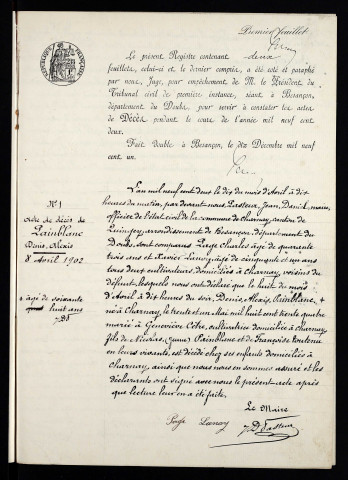 Premier feuillet
Le présent Registre contenant deux
feuillets, celui-ci et le dernier compris, a été coté et paraphé
par nous, Juge, pour empêchement de M. le Président du
Tribunal civil de première instance, séant à Besançon,
département du Doubs, pour servir à constater les actes
de Décès pendant le cours de l'année mil neuf cent
deux.
Fait double à Besançon, le dix Décembre mil neuf
cent un.
N° 1
Acte de décès de
Painblanc
Denis, Alexis
8 Avril 1902
L'an mil neuf cent deux le dix du mois d'Avril à dix
heures du matin, par devant nous Pasteur, Jean, Daniel, maire,
officier de l'état civil de la commune de Charnay, canton de
Quingey, arrondissement de Besançon, département du
Doubs, sont comparus Charles âgé de quarante
trois ans et Xavier âgé de cinquante et un ans
tous deux cultivateurs, domiciliés à Charnay, voisins du
défunt, lesquels nous ont déclaré que le huit du mois
d'Avril à dix heures du soir, Denis, Alexis, Painblanc, +
né à Charnay, le trente et un Mai mil huit cent trente quatre
marié à Geneviève Côtre, cultivatrice domiciliée à Charnay
fils de Nicolas, (Jeune) Painblanc et de Françoise
en leurs vivants, est décédé chez ses enfants domiciliés à
Charnay, ainsi que nous nous en sommes assuré et les
déclarants ont signé avec nous le présent acte après
que lecture leur en a été faite.
+ âgé de soixante
huit ans
Le Maire
J. D. Pasteur